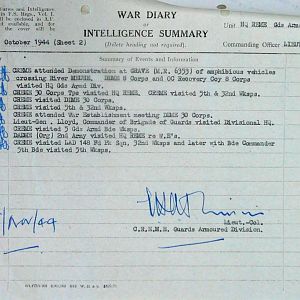 and Intelligence
in F.S. Regs., Vol. I.
WAR DIARY
or
INTELLIGENCE SUMMARY
Unit HQ REME Gds Arm
October 1944 (Sheet 2)
(Delete heading not required).
Commanding Officer
Summary of Events and Information
CREME attended Demonstration at GRAVE (M.R. 6353) of amphibious vehicles
crossing River DDME 8 Corps and OC Recovery Coy 8 Corps
visited HQ Gds Armd Div.
CREME 30 Corps Tps visited HQ REME. CREME visited 5th and 32nd Wksps.
CREME visited 5th & 32nd Wksps.
CREME visited DDME 30 Corps.
CREME attended War Establishment meeting DDME 30 Corps.
Lieut-Gen. Lloyd, Commander of Brigade of Guards visited Divisional HQ
CREME visited 5 Gds Armd Bde
DADME (Org) 2nd Army visited HQ REME re W.E's.
CREME visited LAD 148 Fd Pk Sqn, 32nd Wksps and later with Bde Commander
5th Bde visited 5th Wksps.
/Nov/44
Lieut.-Col.
C.R.E.M.E. Guards Armoured Division.